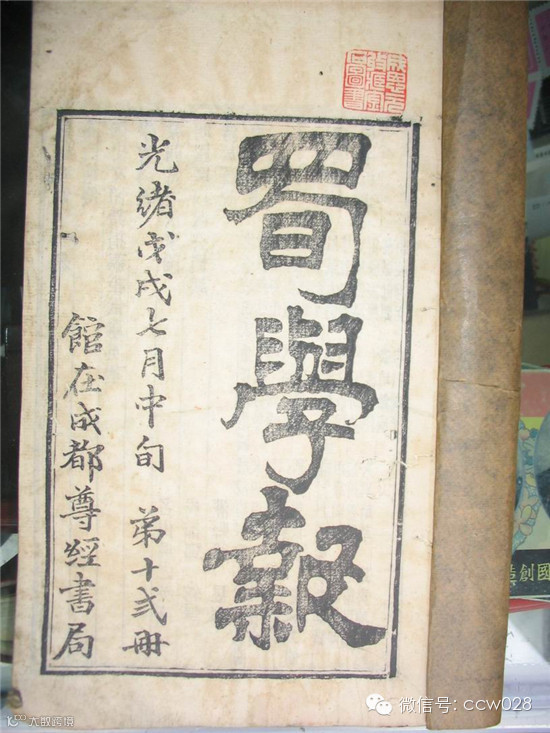 蜀學報
光緒戊戌七月中旬 第十弍冊
館在成都尊經書局
國創
微信号: ccw028
大數跨境